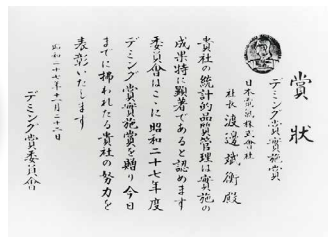 賞狀
デミング賞實施賞
日本電氣株式會社
社長 渡邊斌衡殿
貴社の統計的品質管理は實施の
成果特に顯著であると認めます
委員會はここに昭和二十七年度
デミング賞實施賞を贈り今日
までに拂われたる貴社の努力を
表彰いたします
昭和二十七年十一月二十二日
デミング賞委員會